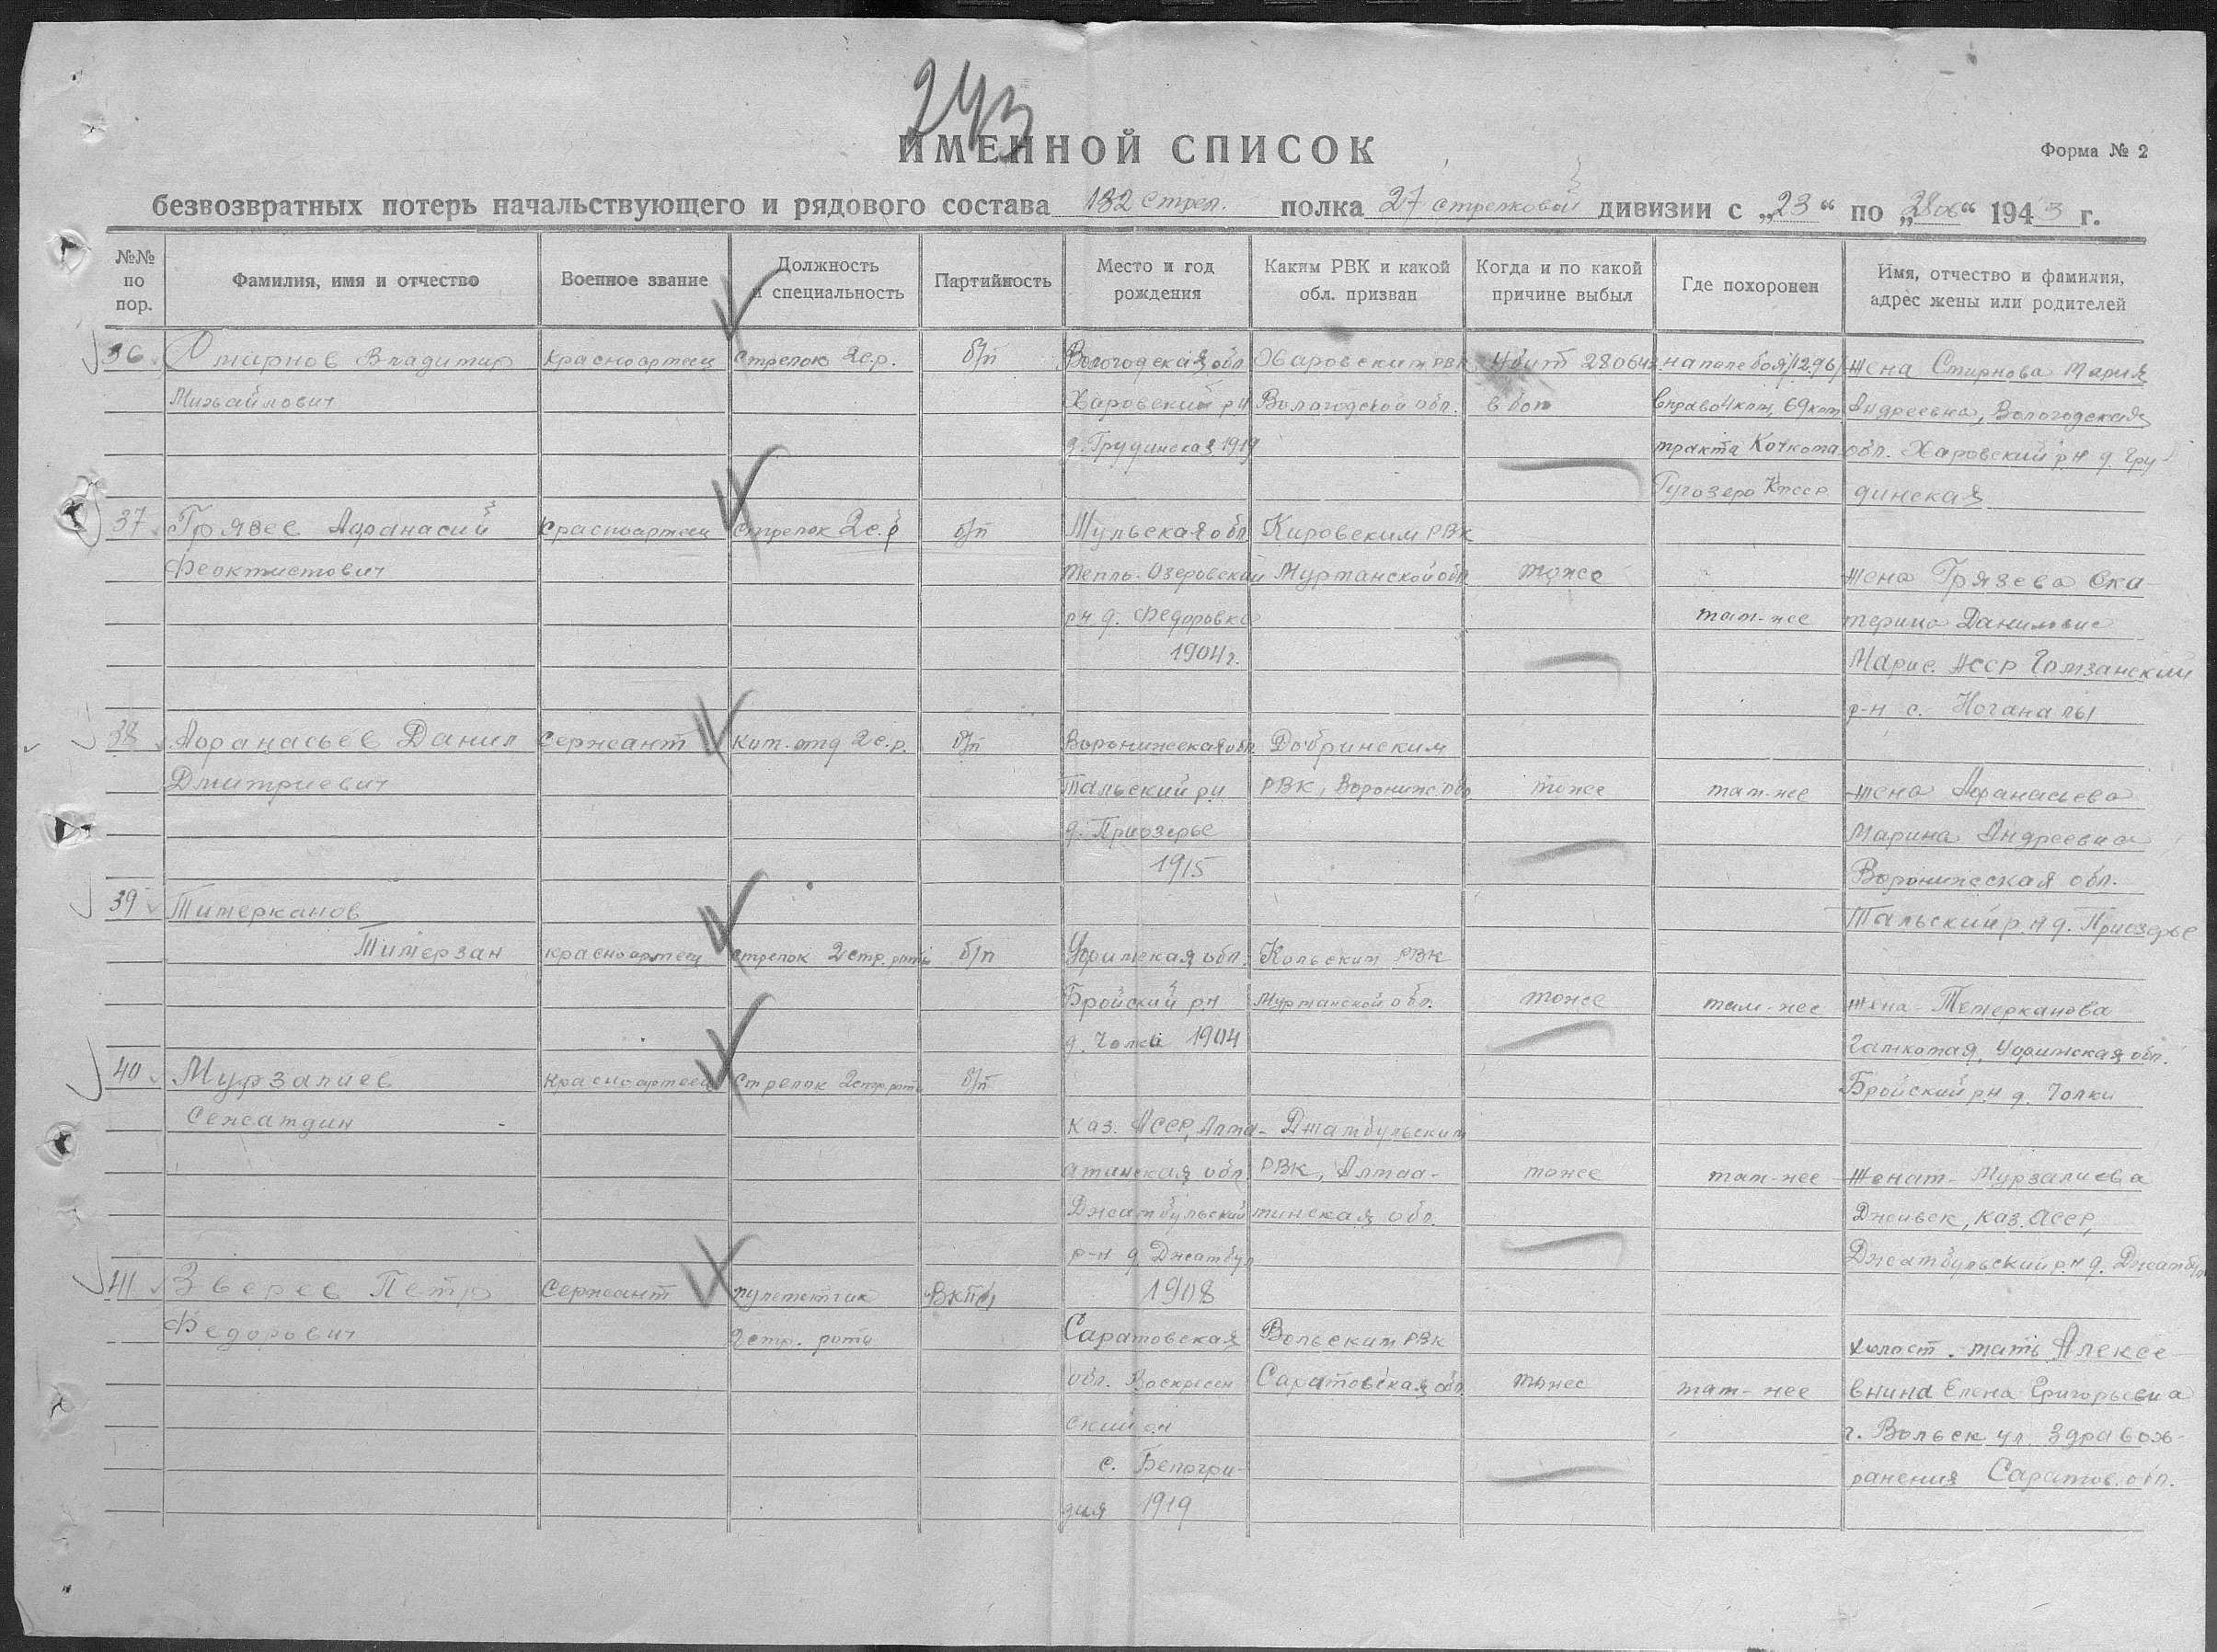 243
ИМЕННОЙ СПИСОК
Форма № 2
безвозвратных потерь начальствующего и рядового состава 132 стрел. полка 27 стрелковой дивизии с „23“ по „28.06“ 1943 г.
№№ по пор.
Фамилия, имя и отчество
Военное звание
Должность и специальность
Партийность
Место и год рождения
Каким РВК и какой обл. призван
Когда и по какой причине выбыл
Где похоронен
Имя, отчество и фамилия, адрес жены или родителей
36 Смирнов Владимир красноармеец стрелок 2с.р. б/п Вологодская обл Харовским РВК Убит 28.06.43 на поле боя /1296/ жена Смирнова Мария
Михайлович Харовский рн Вологодской обл. в бою вправо 4 клм, 69 клм Андреевна, Вологодская
д. Грудинская 1919 тракта Кочкома обл. Харовский р-н д. Гру-
Ругозеро Кфсср динская
37 Грязев Афанасий красноармеец стрелок 2с.р б/п Тульская обл Кировским РВК
Феоктистович тепло-Озеровский Мурманской обл тоже жена Грязева Ека-
рн д. Федоровка там-же терина Даниловна
1904г. Марис. АССР
р-н с.
38 Афанасьев Данил Сержант ком. отд 2с.р. б/п Воронижская обл Добринским
Дмитриевич Тальский р.н РВК, Воронижс обл тоже там-же жена Афанасьева
д. Приозерье Марина Андреевна
1915 Воронижская обл.
Тальский р.н д. Приозерье
39 Тимерканов
Тимерзан красноармеец стрелок 2 стр. роты б/п Уфимская обл. Кольским РВК
Бройский р.н Мурманской обл. тоже там-же жена Темерканова
д. 1904 Уфимская обл.
Бройский р.н д. Чолки
40 Мурзалиев красноармеец стрелок 2 стр. роты б/п
Сежатдин каз. АССР, Алма- Джамбульским
атинская обл РВК, Алмаа- тоже там-же Женат- Мурзалиева
Джамбульский тинская обл. каз. АССР,
р-н д Джамбул Джамбульский р.н д. Джамбул
41 Зверев Петр Сержант пулеметчик ВКПб 1908
Федорович 2 стр. роты Саратовская Вольским РВК холост. мать Алексе-
обл. Воскресен Саратовская обл тоже там-же внина Елена Григорьевна
ский рн г. Вольск ул. Здравох-
с. Белогро- ранения Саратов. обл.
дня 1919